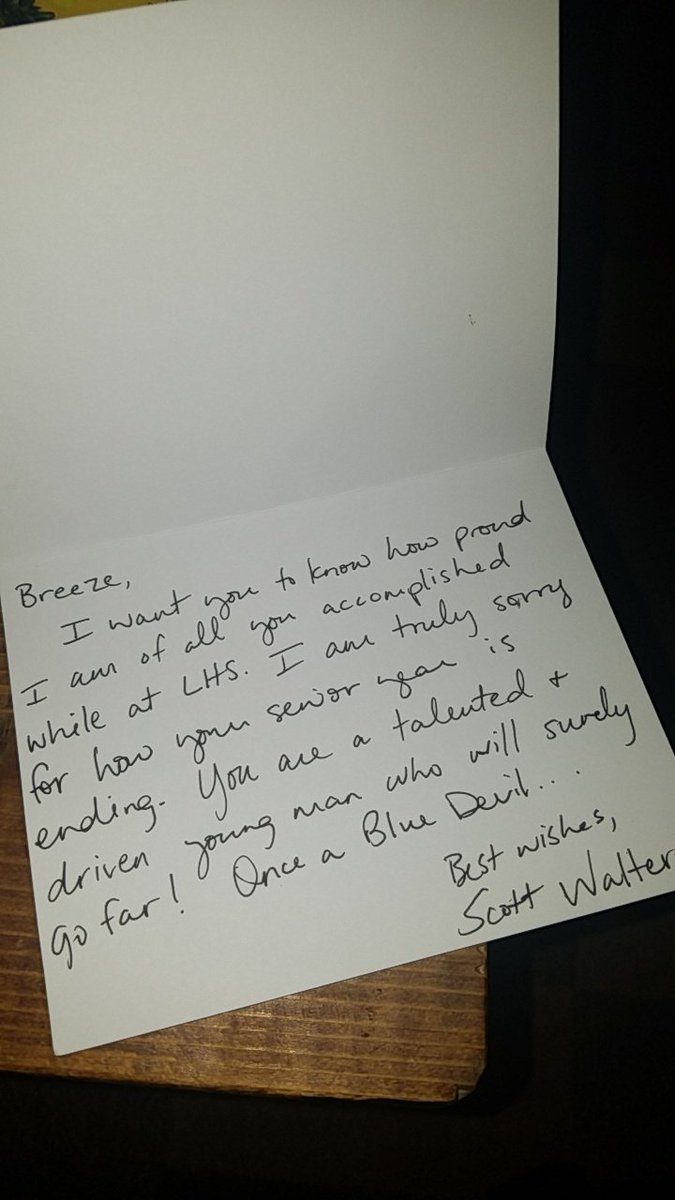 Breeze,
I want you to know how proud
I am of all you accomplished
while at LHS. I am truly sorry
for how your senior year is
ending. You are a talented +
driven young man who will surely
go far! Once a Blue Devil...
Best wishes,
Scott Walter